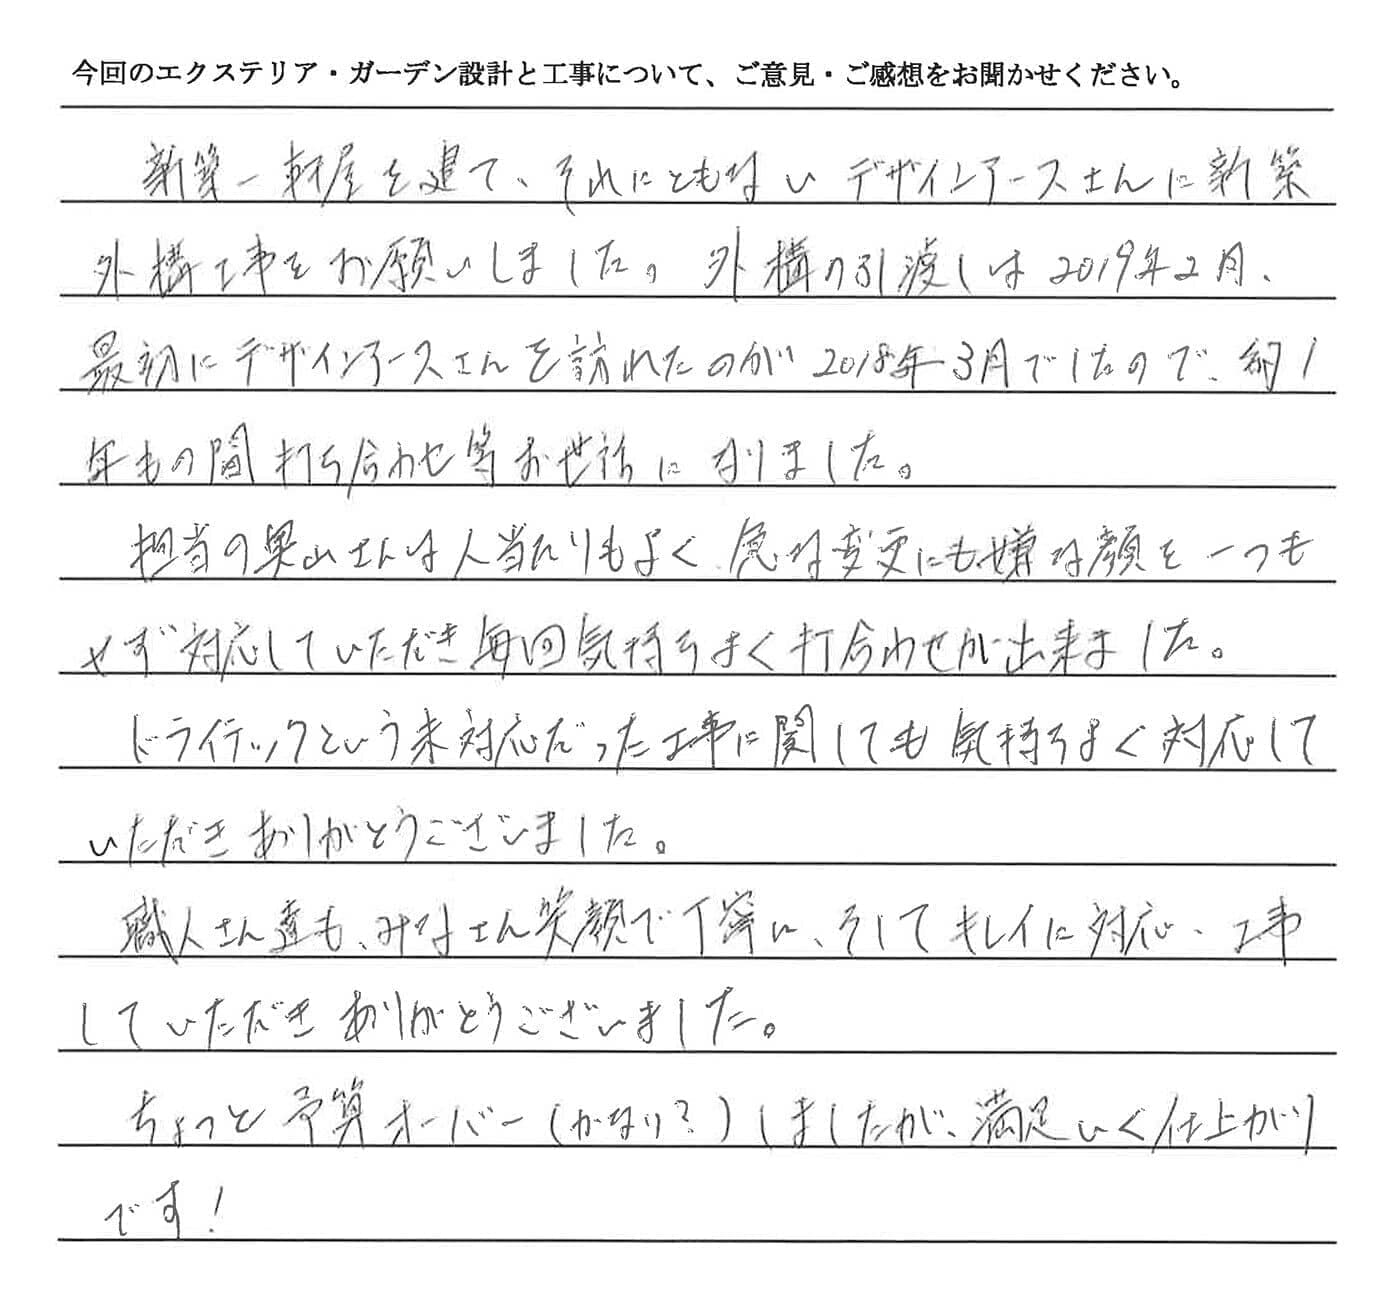 今回のエクステリア・ガーデン設計と工事について、ご意見・ご感想をお聞かせください。
新築一軒屋を建て、それにともない デザインアースさんに新築
外構工事をお願いしました。外構の引渡しは2019年2月、
最初にデザインアースさんを訪れたのが2018年3月でしたので、約1
年もの間打ち合わせ等お世話になりました。
担当の奥山さんは人当たりもよく、急な変更にも嫌な顔を一つも
せず対応していただき毎回気持ちよく打合わせが出来ました。
ドライテックという未対応だった工事に関しても気持ちよく対応して
いただきありがとうございました。
職人さん達も、みなさん笑顔で丁寧に、そしてキレイに対応、工事
していただきありがとうございました。
ちょっと予算オーバー(かなり?)しましたが、満足いく仕上がり
です!